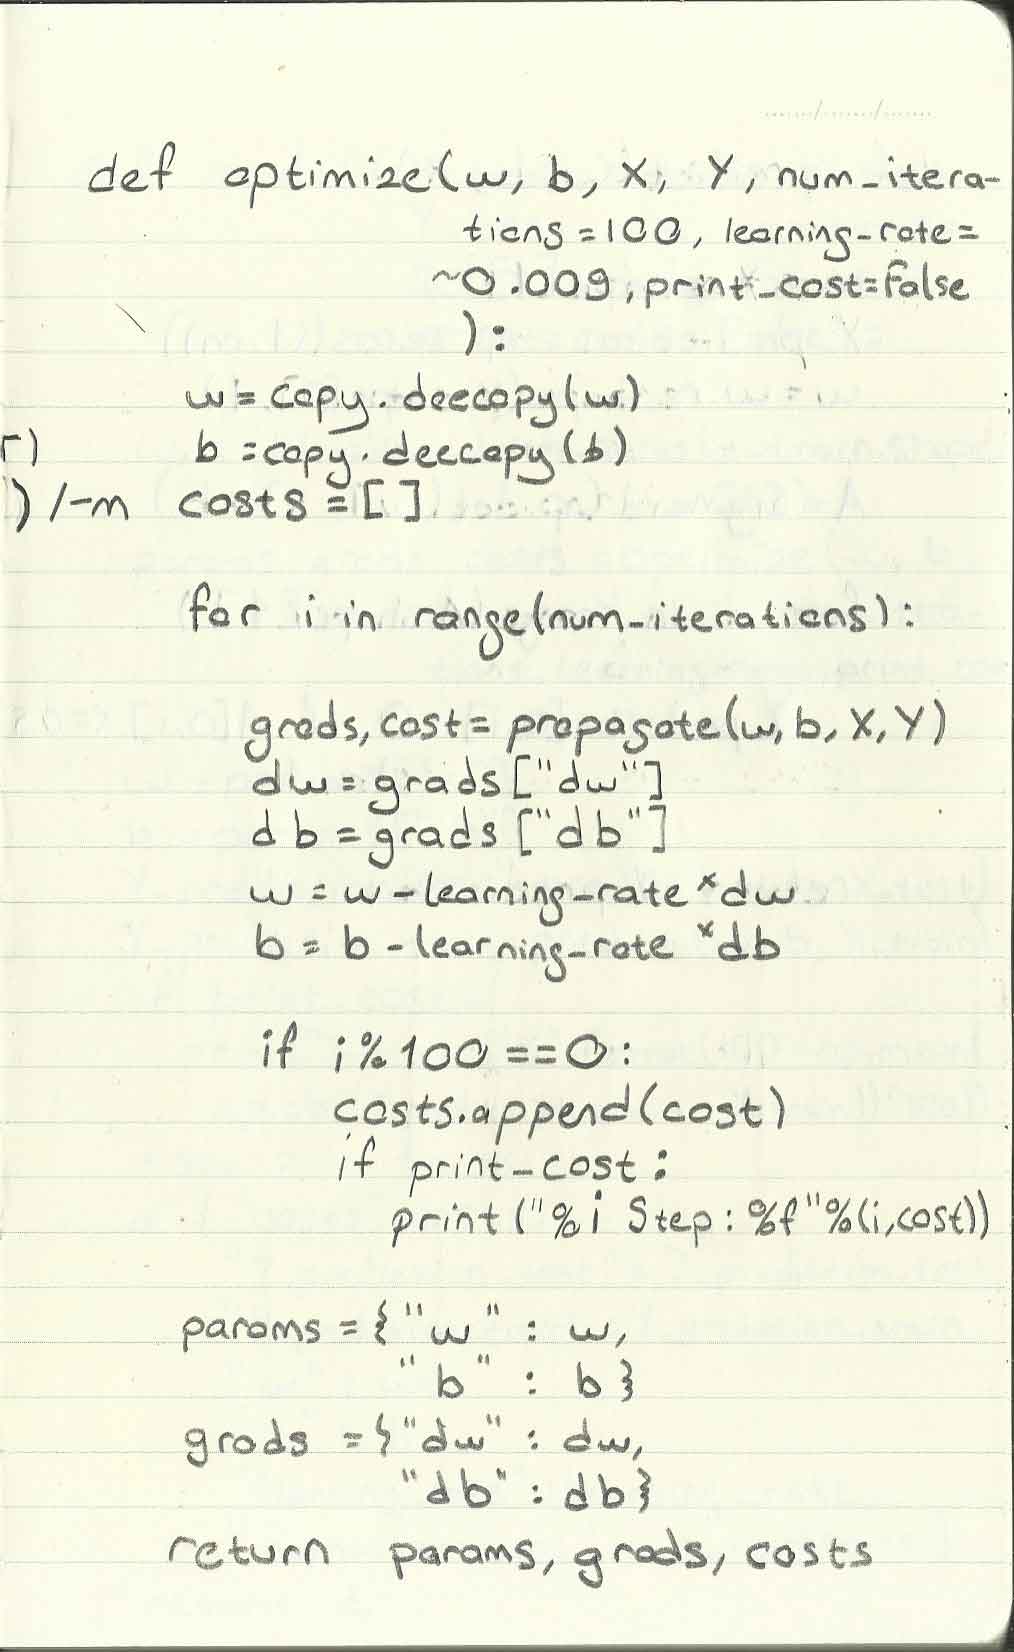 def optimize(w, b, X, Y, num_itera-
tions=100, learning_rate=
~0.009, print_cost=False
):
w = copy.deecopy(w)
r)    b = copy.deecopy(b)
) /-m    costs = []
for i in range(num_iterations):
grads, cost = propagate(w, b, X, Y)
dw = grads["dw"]
db = grads["db"]
w = w - learning_rate * dw
b = b - learning_rate * db
if i % 100 == 0:
costs.append(cost)
if print_cost:
print("%i Step: %f"%(i,cost))
params = {"w" : w,
"b" : b}
grads = {"dw" : dw,
"db" : db}
return params, grads, costs